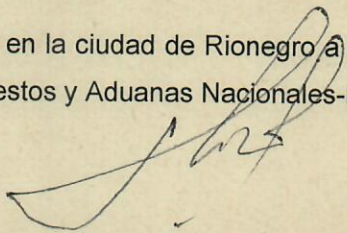 en la ciudad de Rionegro a
estos y Aduanas Nacionales-